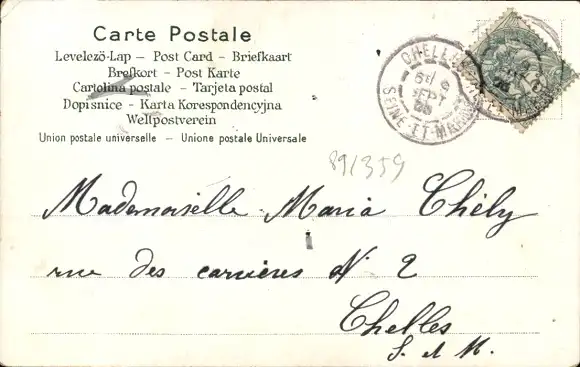 Carte Postale
Levelezö-Lap — Post Card — Briefkaart
Brefkort — Post Karte
Cartolina postale — Tarjeta postal
Dopisnice — Karta Korespondencyjna
Weltpostverein
Union postale universelle — Unione postale Universale
CHELLES
SEPT
SEINE-ET-MARNE
89/359
Mademoiselle Maria Chély
rue des carrières N° 2
Chelles
S. et M.